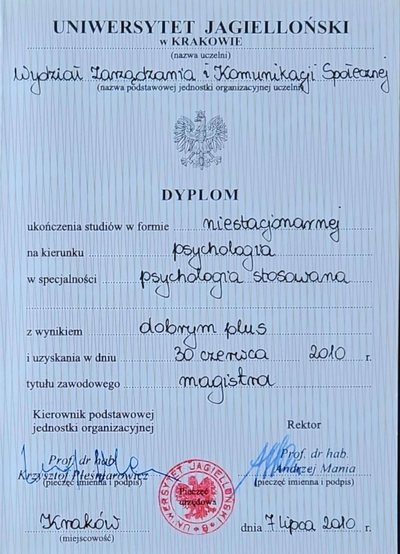 UNIWERSYTET JAGIELLOŃSKI
w KRAKOWIE
(nazwa uczelni)
Wydział Zarządzania i Komunikacji Społecznej
(nazwa podstawowej jednostki organizacyjnej uczelni)
DYPLOM
ukończenia studiów w formie niestacjonarnej
na kierunku psychologia
w specjalności psychologia stosowana
z wynikiem dobrym plus
i uzyskania w dniu 30 czerwca 2010 r.
tytułu zawodowego magistra
Kierownik podstawowej
jednostki organizacyjnej
Rektor
Prof. dr hab.
Krzysztof Pleśniarowicz
(pieczęć imienna i podpis)
Prof. dr hab.
Andrzej Mania
(pieczęć imienna i podpis)
UNIWERSYTET JAGIELLOŃSKI
Pieczęć
urzędowa
Kraków
(miejscowość)
dnia 7 lipca 2010 r.